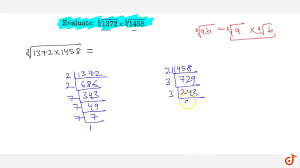 Evaluate: ∛1372×∛1458
∛ab = ∛a × ∛b
∛1372×1458 =
2 | 1372
2 | 686
7 | 343
7 | 49
7 | 7
1
2 | 1458
3 | 729
3 | 243